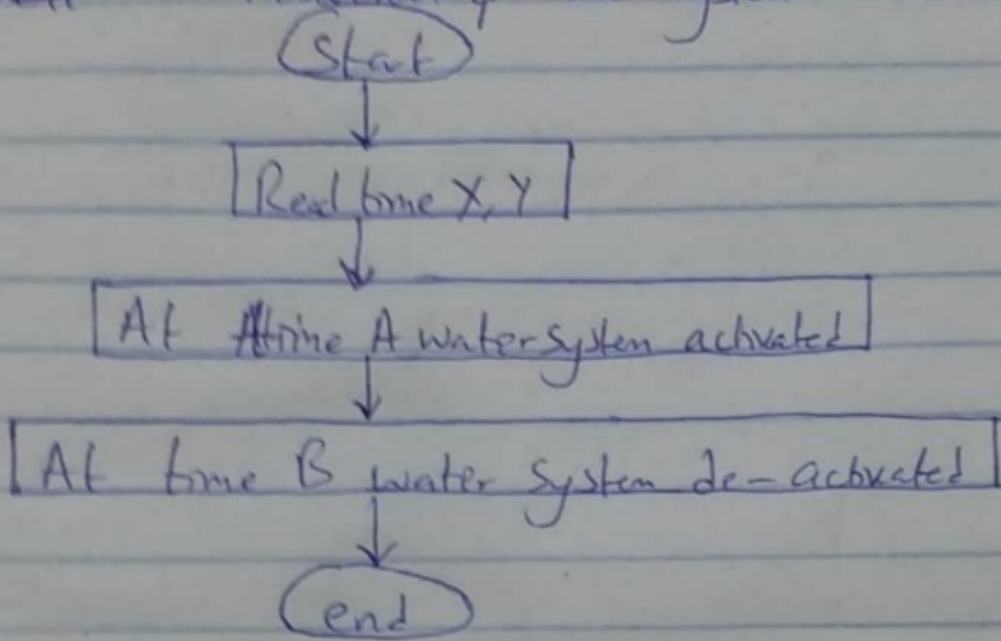 Start
Read time X, Y
At time A water system activated
At time B water system de-activated
end